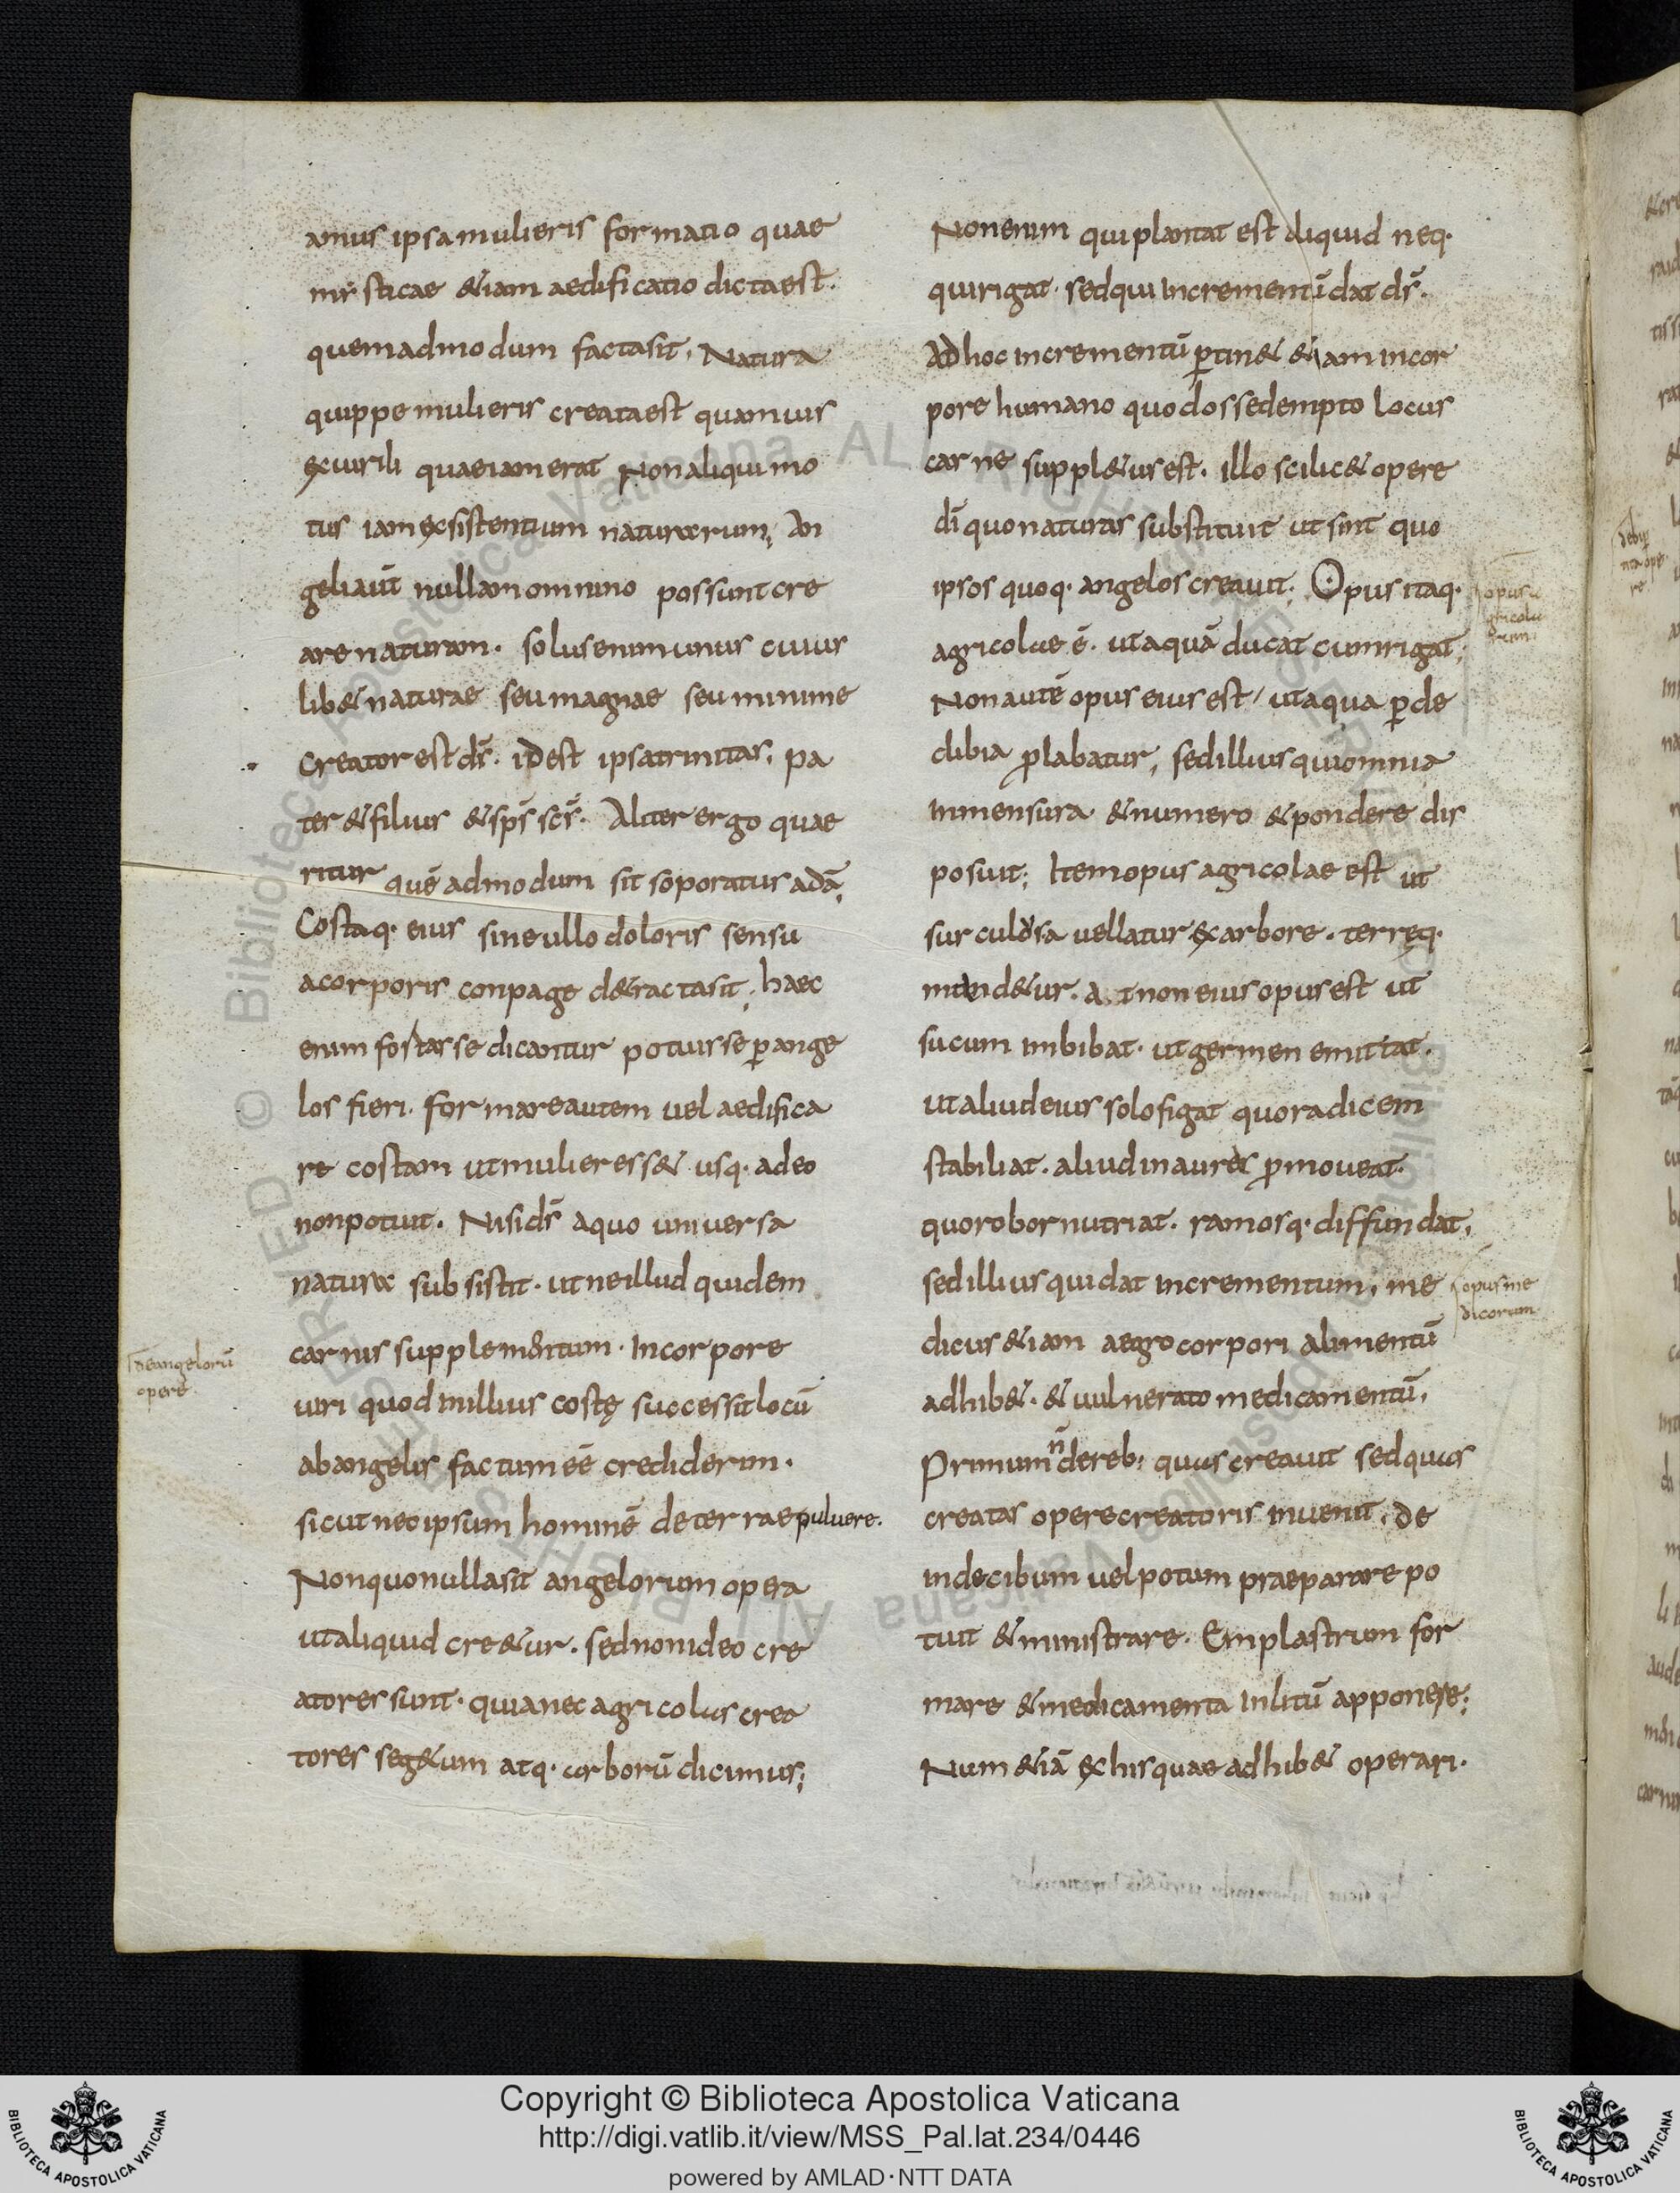 amus ipsa mulieris formatio quae
misticae &iam aedificatio dicta est.
quemadmodum facta sit; Natura
quippe mulieris creata est quamuis
ex uirili quae iam erat Non aliqui mo
tus iam exsistentium naturarum; An
geli aut̄ nullam omnino possunt cre
are naturam. solus enim unus cuius
lib& naturae seu magnae seu minime
creator est ds̄. id est ipsa trinitas; pa
ter & filius & sps̄ scs̄. Aliter ergo quae
ritur quē admodum sit soporatus adā;
Costaq· eius sine ullo doloris sensu
a corporis conpage d&racta sit; haec
enim fostasse dicantur potuisse ꝑ ange
los fieri. formare autem uel aedifica
re costam ut mulier ess& usq· adeo
non potuit. Nisi ds̄ a quo uniuersa
natura subsistit. ut ne illud quidem
carnis supplementum. In corpore
uiri quod in illius costę successit locū
ab angelis factum eē crediderim.
sicut nec ipsum hominē de terrae puluere.
Non quo nulla sit angelorum opera
ut aliquid cre&ur. sed non ideo cre
atores sunt. quia nec agricolas crea
tores seg&um atq· arborū dicimus;
de angelorū
opere.
Non enim qui plantat est aliquid neq·
qui rigat. sed qui incrementū dat ds̄.
Ad hoc incrementū ꝑtin& &iam in cor
pore humano quod osse dempto locus
carne suppl&us est. illo scilic& opere
dī quo naturas substituit ut sint quo
ipsos quoq· angelos creauit; Opus itaq·
agricolae ē. ut aquā ducat cum rigat;
Non autē opus eius est, ut aqua ꝑ de
clibia ꝓlabatur; sed illius qui omnia
in mensura & numero & pondere dis
posuit; Item opus agricolae est ut
surculus a uellatur ex arbore. terręq·
mand&ur. At non eius opus est ut
sucum imbibat. ut germen emittat.
ut aliud eius solo figat quo radicem
stabiliat. aliud in auras ꝓmoueat.
quo robor nutriat. ramosq· diffundat;
sed illius qui dat incrementum; me
dicus &iam aegro corpori alimentū
adhib&. & uulnerato medicamentū.
Primum n̄ de reb; quas creauit sed quas
creatas opere creatoris inuenit; de
inde cibum uel potum praeparare po
tuit & ministrare. Emplastrum for
mare & medicamenta inlitū apponere;
Num &iā ex his quae adhib& operari.
opus a
gricola
rum
opus me
dicorum
Copyright © Biblioteca Apostolica Vaticana
http://digi.vatlib.it/view/MSS_Pal.lat.234/0446
powered by AMLAD·NTT DATA
BIBLIOTECA APOSTOLICA VATICANA
BIBLIOTECA APOSTOLICA VATICANA